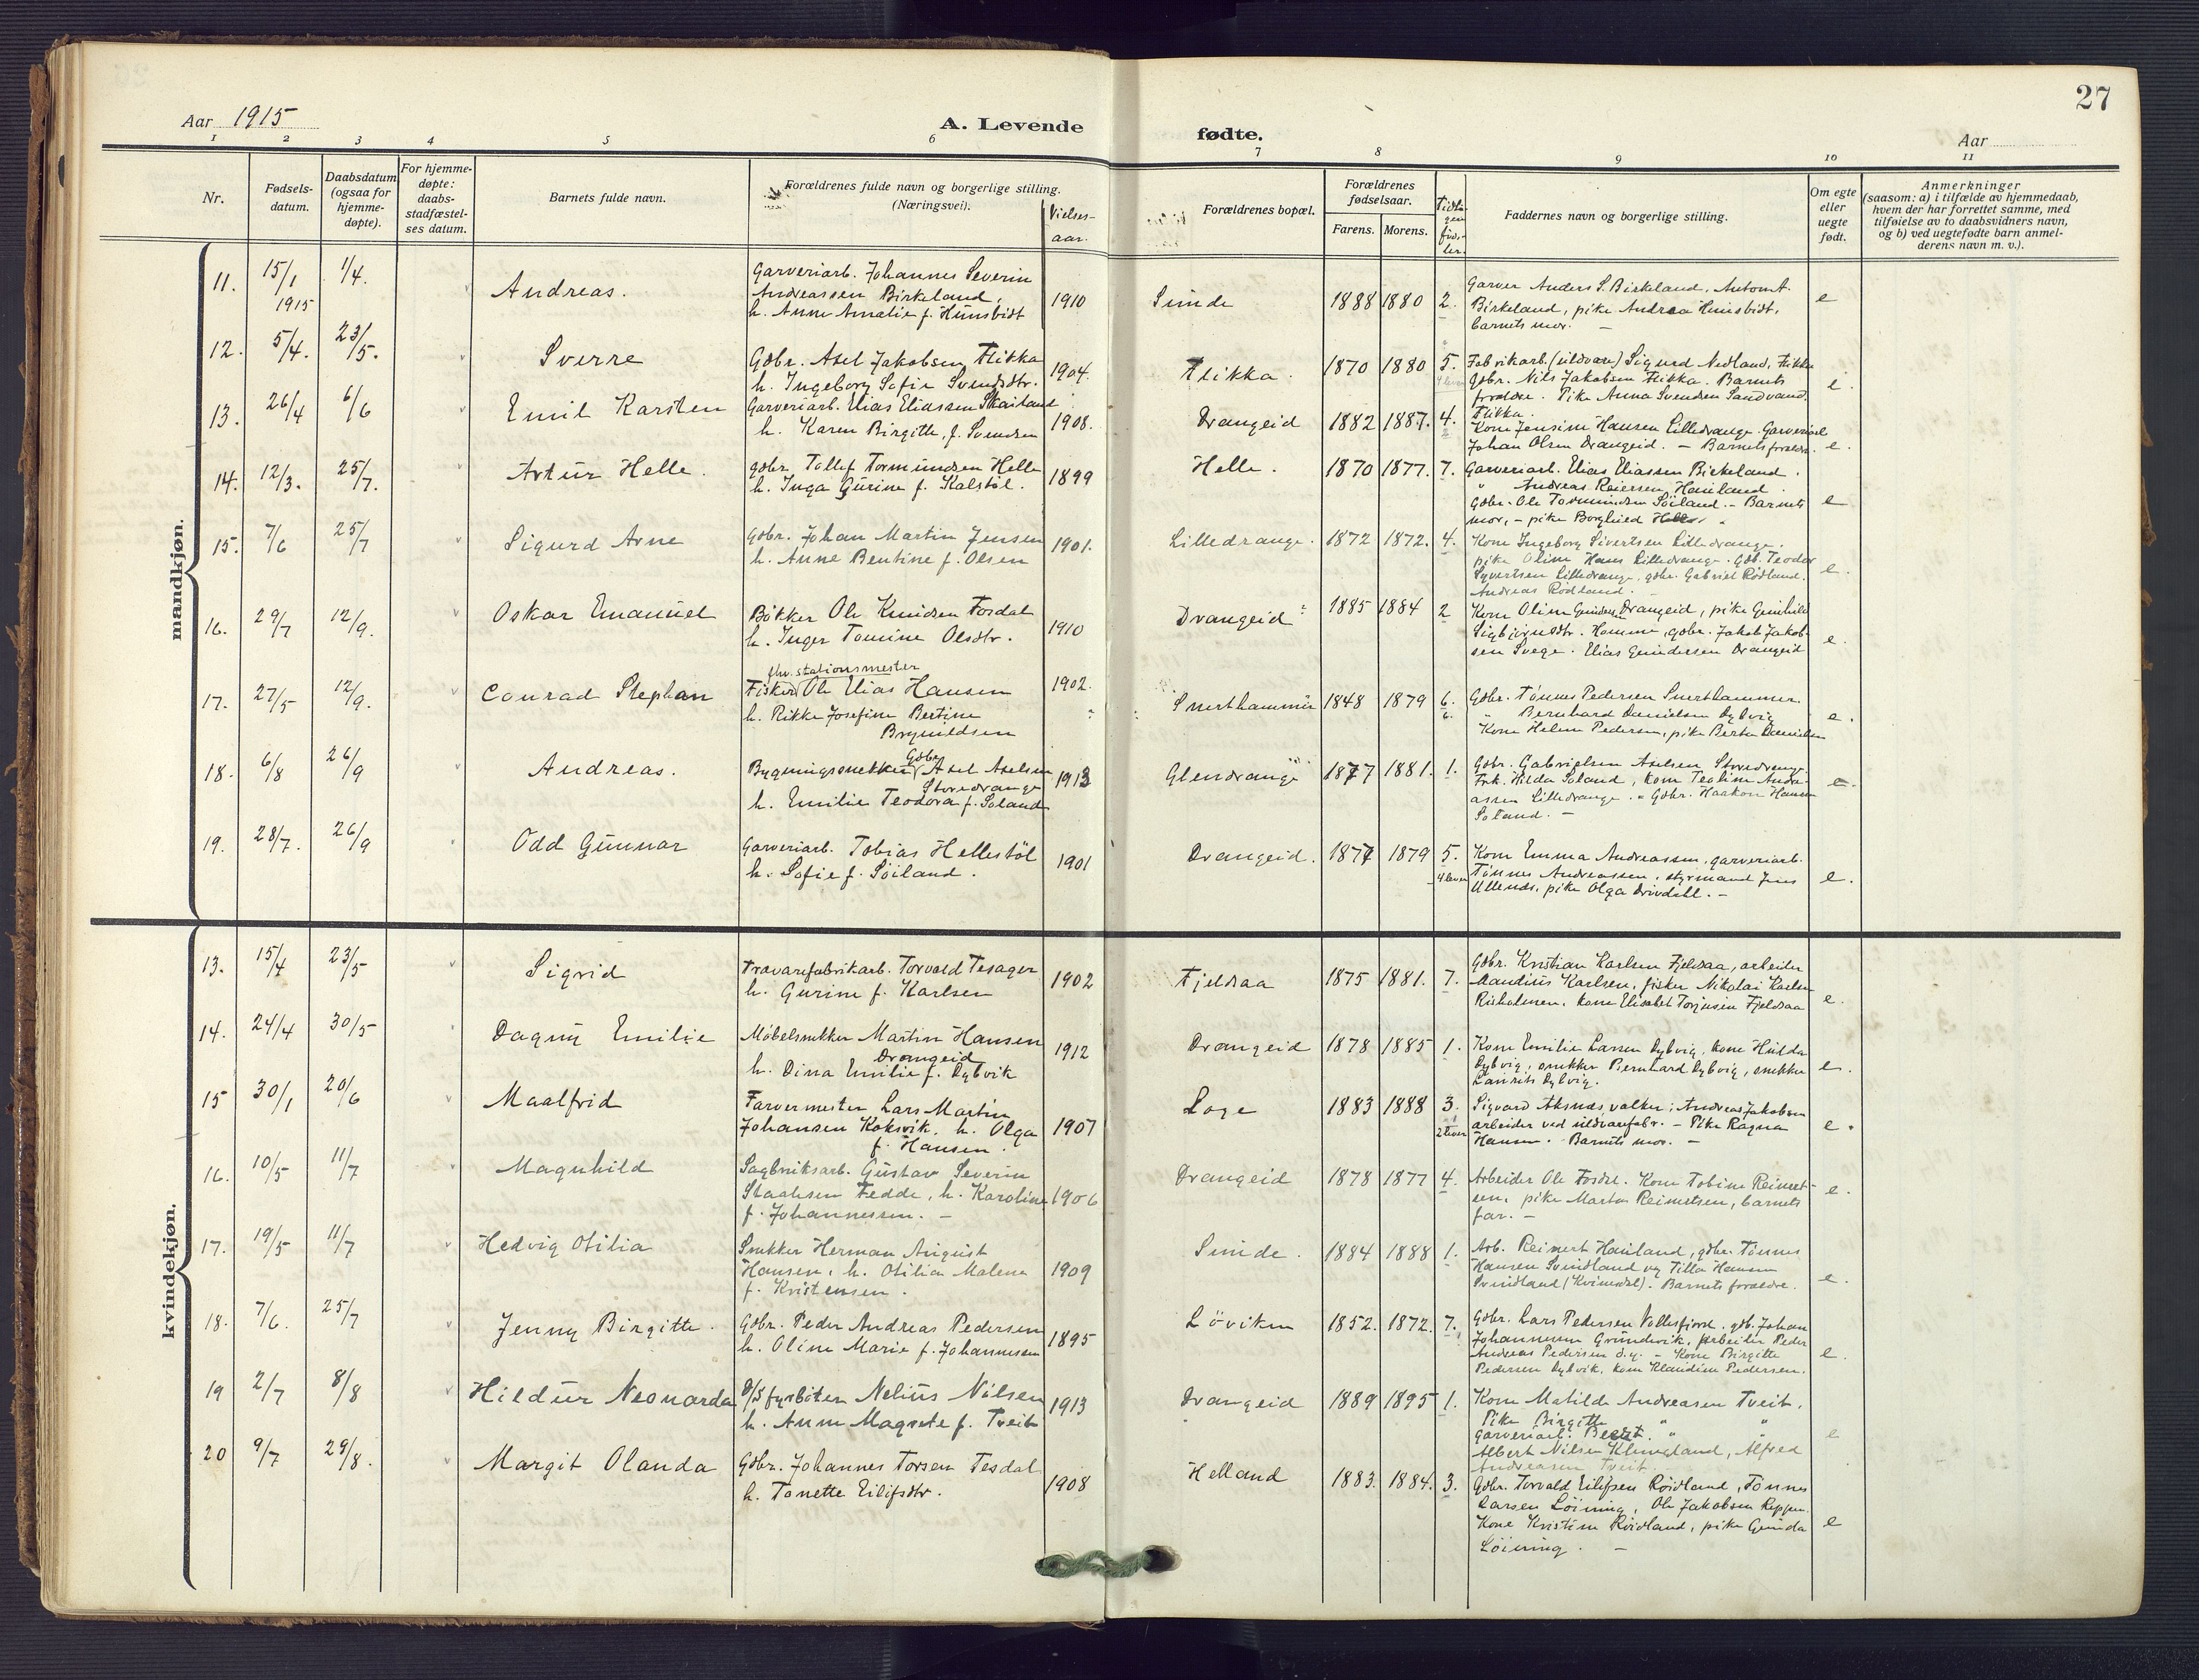 27
Aar 1915
A. Levende
fødte.
Aar
1 2 3 4 5 6 7 8 9 10 11
Nr.
Fødsels-
datum.
Daabsdatum
(ogsaa for
hjemme-
døpte).
For hjemme-
døpte:
daabs-
stadfæstel-
ses datum.
Barnets fulde navn.
Forældrenes fulde navn og borgerlige stilling.
(Næringsvei).
Vielses-
aar.
Forældrenes bopæl.
Forældrenes
fødselsaar.
Farens. Morens.
Faddernes navn og borgerlige stilling.
Om egte
eller
uegte
født.
Anmerkninger
(saasom: a) i tilfælde av hjemmedaab,
hvem der har forrettet samme, med
tilføielse av to daabsvidners navn,
og b) ved uegtefødte barn anmel-
derens navn m. v.).
mandkjøn.
11. 15/1 1915 1/4. Andreas.
Garveriarb. Johannes Severin
Andreassen Birkeland,
h. Anne Amalie f. Heimsbidt
1910 Sunde 1888 1880 2.
Garver Anders S. Birkeland, Anton A.
Birkeland, pike Andrea Heimsbidt,
barnets mor. —
e
12. 5/4. 23/5. Sverre
Gdbr. Axel Jakobsen Flikka
h. Ingeborg Sofie Svendsdtr.
1904. Flikka. 1870 1880 5.
Fabrikarb. (uldvare) Sigurd Nedland, Flikka
Gdbr. Nils Jakobsen Flikka. Barnets
forældre. Pike Anna Svendsen Sandvand,
Flikka.
e.
13. 26/4 6/6 Emil Karsten
Garveriarb. Elias Eliassen Skailand
h. Karen Birgitte, f. Svendsen
1908. Drangeid 1882 1887. 4.
Kone Jensine Hansen Lilledrange. Garveriarb.
Johan Olsen Drangeid. — Barnets forældre.
e.
14. 12/3. 25/7. Artur Helle.
gdbr. Tollef Tormundsen Helle
h. Inga Gurine f. Kalstøl.
1899 Helle. 1870 1877. 7.
Garveriarb. Elias Eliassen Birkeland.
" Andreas Reiersen Hauland.
Gdbr. Ole Tormundsen Söiland. — Barnets
mor, — pike Borghied Helle.
e
15. 7/6 25/7 Sigurd Arne
Gdbr. Johan Martin Jensen
h. Anne Bentine f. Olsen
1901. Lilledrange. 1872 1872. 4.
Kone Ingeborg Sivertsen Lilledrange.
pike Oline Hans Lilledrange. Gdb. Teodor
Syvertsen Lilledrange, gdbr. Gabriel Rødland.
Andreas Rødland.
e.
16. 29/7 12/9. Oskar Emanuel
Bökker Ole Knudsen Fosdal
h. Inger Tomine Olsdtr.
1910 Drangeid 1885 1884 2
Kone Oline Gundersen Drangeid, pike Gunhild
Sigbjörnsdtr. Homme, gdbr. Jakob Jakob-
sen Svege. Elias Gundersen Drangeid
e.
17. 27/5 12/9. Conrad Stephan
fhv. stationsmester
Fisker Ole Elias Hansen
h. Rikke Josefine Bertine
Brynildsen
1902. Snerthammer 1848 1879 6.
6.
Gdbr. Tönnes Pedersen Snerthammer.
" Bernhard Danielsen Dybvig
Kone Helene Pedersen, pike Berta Danielsen
e.
18. 6/8 26/9 Andreas.
Gdbr.
Bygningssnekker Axel Axelsen
Storedrange
h. Emilie Teodora f. Soland
1913 Glendrange 1877 1881. 1.
Gdbr. Gabrielsen Axelsen Storedrange
Frk. Hilda Soland, kone Teoline Andre-
assen Lilledrange. Gdbr. Haakon Hansen
Soland. —
e.
19. 28/7. 26/9 Odd Gunnar
Garveriarb. Tobias Hellestöl
h. Sofie f. Söiland.
1901 Drangeid. 1877 1879 5.
4 lever
Kone Emma Andreassen, garveriarb.
Tönnes Andreassen, styrmand Jens
Ullenæs, pike Olga Drivdahl. —
e.
kvindekjøn.
13. 15/4 23/5 Sigrid
Travarefabrikarb. Torvald Tesager
h. Gurine f. Karlsen
1902 Fjeldsaa 1875 1881. 7.
Gdbr. Kristian Karlsen Fjeldsaa, arbeider
Maudius Karlsen, fisker Nikolai Karlsen
Risholmen, kone Elisabet Torjusen Fjeldsaa
e.
14. 24/4 30/5 Dagny Emilie
Møbelsnekker Martin Hansen
Drangeid
h. Dina Emilie f. Dybvik
1912 Drangeid 1878 1885 1.
Kone Emilie Larsen Dybvig, kone Hulda
Dybvig, snekker Bernhard Dybvig, snekker
Laurits Dybvig.
e.
15 30/1 20/6 Maalfrid
Farvermester Lars Martin
Johansen Koksvik, h. Olga
f. Hansen.
1907 Loge 1883 1888 3.
2 lever
Sigvard Aksnes, valker; Andreas Jakobsen
arbeider ved uldvarefabr. — Pike Ragna
Hansen. Barnets mor. —
e.
16. 10/5 11/7 Magnhild
Sagbruksarb. Gustav Severin
Staalesen Fedde, h. Karoline
f. Johannessen. —
1906 Drangeid 1878 1877 4.
Arbeider Ole Fosdal. Kone Tobine Reinert-
sen, pike Marta Reinertsen, barnets
far. —
e.
17. 19/5 11/7 Hedvig Otilia
Snekker Herman August
Hansen, h. Otilia Malene
f. Kristensen.
1909 Sunde. 1884 1888 1.
Arb. Reinert Hauland, gdbr. Tönnes
Hansen Svindland og Tilla Hansen
Svindland (Kvinesdal). Barnets forældre.
e.
18. 7/6. 25/7 Jenny Birgitte.
Gdbr. Peder Andreas Pedersen
h. Oline Marie f. Johannesen
1895 Löviken 1852. 1872. 7.
Gdbr. Lars Pedersen Vollesfjord, gdb. Johan
Johannesen Grundevik, arbeider Peder
Andreas Pedersen d.y. — Kone Birgitte
Pedersen Dybvik, kone Klaudine Pedersen.
e.
19 2/7 8/8 Hildur Neonarda
D/S fyrböter Nelius Nilsen
h. Anne Magrete f. Tveit
1913 Drangeid 1889 1895 1.
Kone Matilde Andreasen Tveit,
Pike Birgitte " "
Garveriarb. Berent. " "
Albert Nilsen Klungland, Alfred
Andreasen Tveit.
e
20 9/7 29/8. Margit Olanda
Gdbr. Johannes Torsen Tesdal
h. Tonette Eilifsdtr.
1908 Helland 1883. 1884. 3.
Gdbr. Torvald Eilifsen Röidland, Tönnes
Larsen Löining, Ole Jakobsen Röppen.
Kone Kristine Röidland, pike Gunda
Löining. —
e